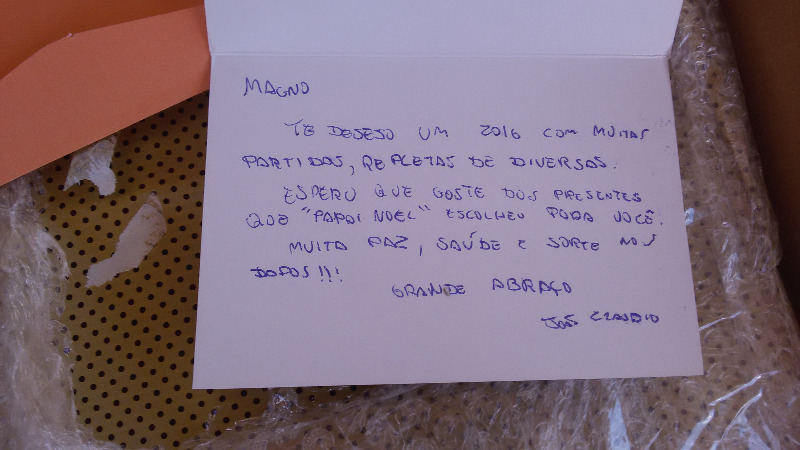 MAGNO
TE DESEJO UM 2016 COM MUITAS
PARTIDAS, REPLETAS DE DIVERSAS.
ESPERO QUE GOSTE DOS PRESENTES
QUE "PAPAI NOEL" ESCOLHEU PARA VOCÊ.
MUITA PAZ, SAÚDE E SORTE NOS
DADOS!!!
GRANDE ABRAÇO
JOSÉ CLAUDIO